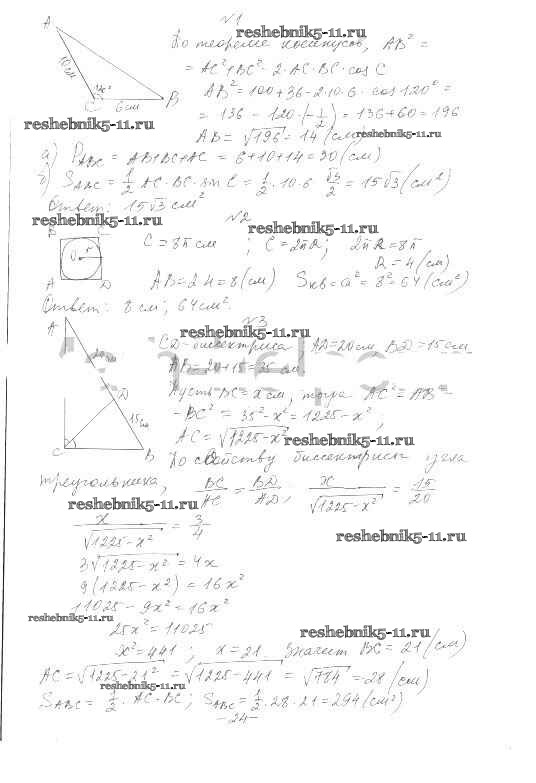 №1
reshebnik5-11.ru
A
По теореме косинусов, AB² =
= AC² + BC² - 2·AC·BC·cos C
10 см
120°
C 6 см B
AB² = 100+36-2·10·6·cos 120° =
= 136 - 120·(-1/2) = 136+60 = 196
reshebnik5-11.ru
AB = √196 = 14 (см)
reshebnik5-11.ru
а) P ABC = AB+BC+AC = 6+10+14 = 30 (см)
б) S ABC = 1/2 AC·BC·sin C = 1/2·10·6 √3/2 = 15√3 (см²)
Ответ: 15√3 см²
reshebnik5-11.ru
№2
reshebnik5-11.ru
B C
O r
A D
C = 8π см ; C = 2πR ; 2πR = 8π
R = 4 (см)
AB = 2·4 = 8 (см) Sкв = a² = 8² = 64 (см²)
Ответ: 8 см ; 64 см².
№3
reshebnik5-11.ru
A
20 см
D
15 см
C B
CD - биссектриса, AD = 20 см, BD = 15 см
AB = 20+15 = 35 см.
Пусть BC = x см, тогда AC² = AB² -
- BC² = 35² - x² = 1225 - x² ;
AC = √1225-x²
reshebnik5-11.ru
По свойству биссектрисы угла
треугольника, BC/AC = BD/AD, x/√1225-x² = 15/20
reshebnik5-11.ru
x/√1225-x² = 3/4
reshebnik5-11.ru
3√1225-x² = 4x
9(1225-x²) = 16x²
11025 - 9x² = 16x²
reshebnik5-11.ru
25x² = 11025
reshebnik5-11.ru
x² = 441 ; x = 21. Значит BC = 21 (см)
AC = √1225-21² = √1225-441 = √784 = 28 (см)
reshebnik5-11.ru
S ABC = 1/2·AC·BC ; S ABC = 1/2·28·21 = 294 (см²)
-24-